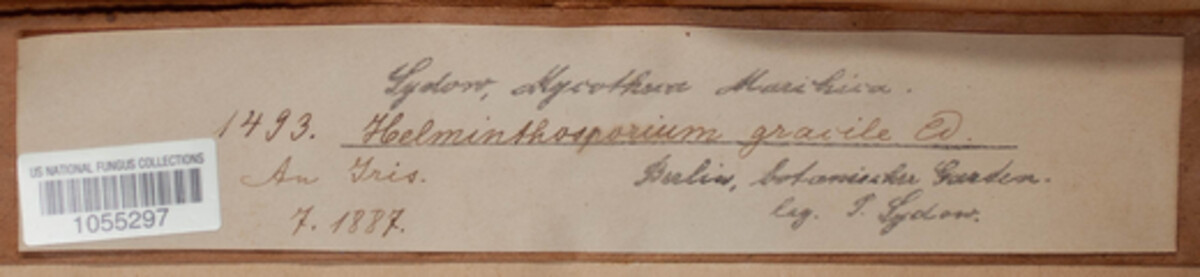 Sydow, Mycotheca Marchica.
1493. Helminthosporium gracile
An Iris. Berlin, botanischer Garten.
7. 1887. leg. P. Sydow.
US NATIONAL FUNGUS COLLECTIONS
1055297